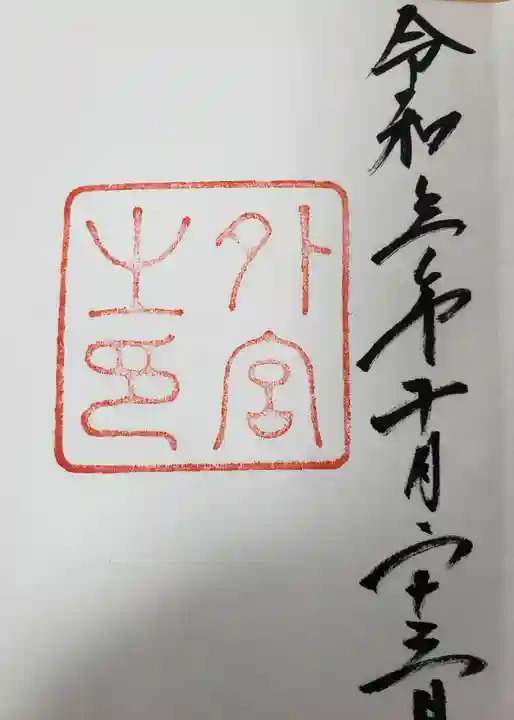 令和三年十月二十三日
外宮
之印